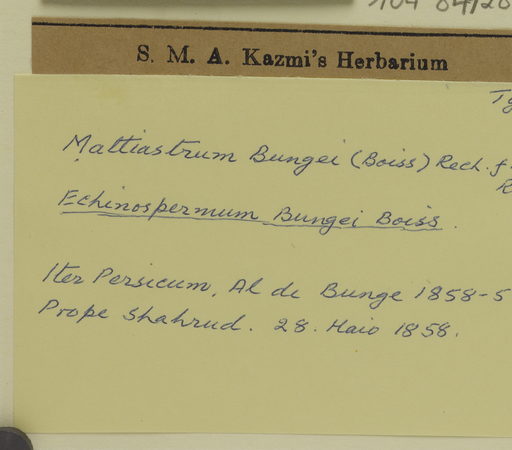 S. M. A. Kazmi's Herbarium
Ty
Mattiastrum Bungei (Boiss) Rech. f.
R
Echinospermum Bungei Boiss.
Iter Persicum, Al de Bunge 1858-5
Prope Shahrud. 28. Maio 1858.